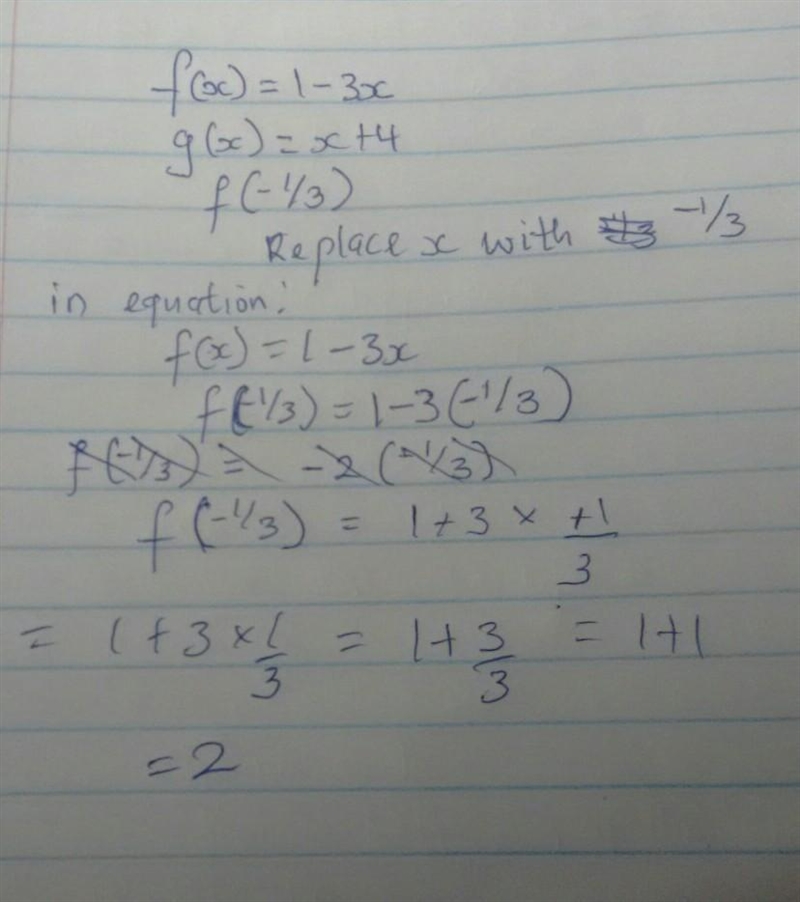 f(x) = 1 - 3x
g(x) = x+4
f(-1/3)
Replace x with -1/3
in equation:
f(x) = 1 - 3x
f(-1/3) = 1-3(-1/3)
f(-1/3) = -2(-1/3)
f(-1/3) = 1+3 × +1/3
= 1+3×1/3 = 1+3/3 = 1+1
= 2